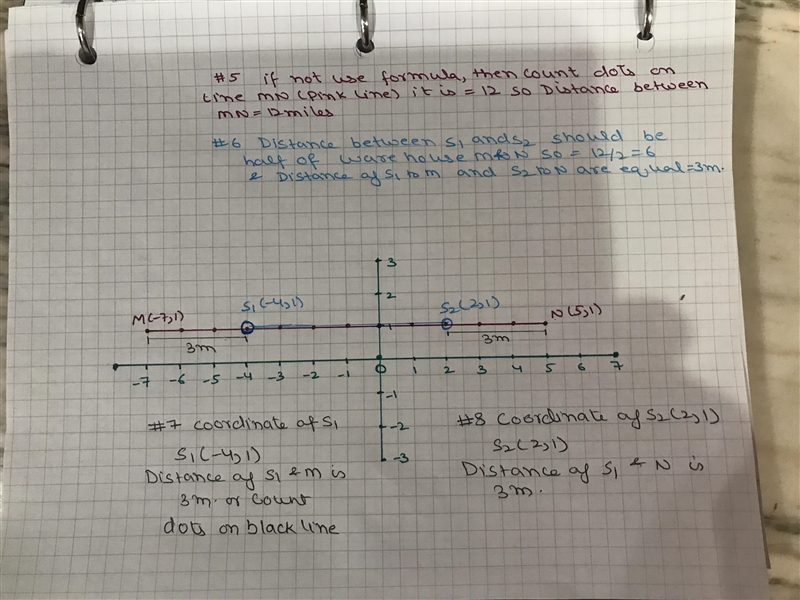 #5 if not use formula, then count dots on
line MN (Pink line) it is = 12 so Distance between
MN = 12 miles
#6 Distance between S1 and S2 should be
half of ware house M to N so = 12/2 = 6
& Distance of S1 to M and S2 to N are equal = 3m.
3
2
S1(-4,1)
S2(2,1)
M(-7,1)
N(5,1)
1
3m
3m
-7 -6 -5 -4 -3 -2 -1 0 1 2 3 4 5 6 7
-1
-2
-3
#7 coordinate of S1
S1(-4,1)
Distance of S1 & M is
3m. or count
dots on black line
#8 Coordinate of S2(2,1)
S2(2,1)
Distance of S1 & N is
3m.